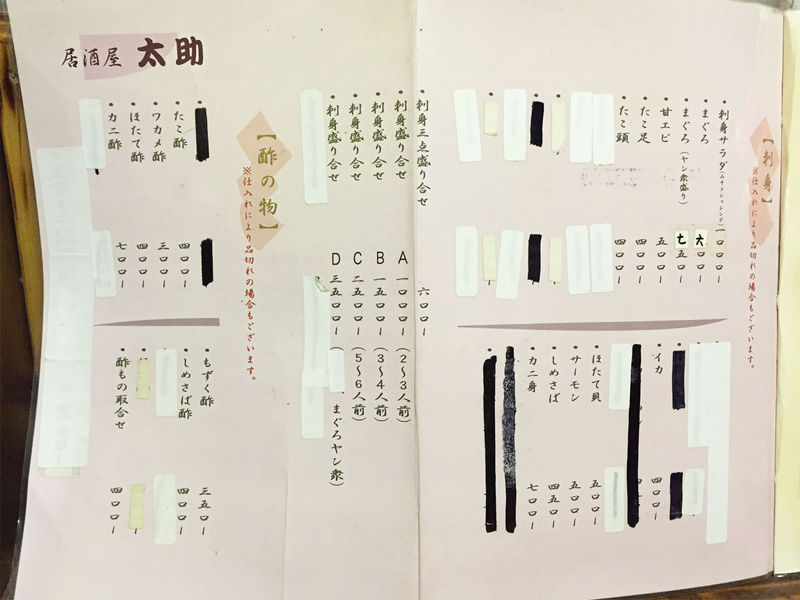 【刺身】
※仕入れにより品切れの場合もございます。
・刺身サラダ(みそドレッシング) 一〇〇〇ー
・まぐろ 六〇〇ー
・まぐろ(ヤン衆盛り) 七五〇ー
・甘エビ 五〇〇ー
・たこ足 四〇〇ー
・たこ頭 四〇〇ー
・イカ 四〇〇ー
・ほたて貝 五〇〇ー
・サーモン 五〇〇ー
・しめさば 四五〇ー
・カニ身 七〇〇ー
・刺身三点盛り合せ 六〇〇ー
・刺身盛り合せ A 一〇〇〇ー(2〜3人前)
・刺身盛り合せ B 一五〇〇ー(3〜4人前)
・刺身盛り合せ C 二五〇〇ー(5〜6人前)
・刺身盛り合せ D 三五〇〇ー( まぐろヤン衆)
【酢の物】
※仕入れにより品切れの場合もございます。
・たこ酢 四〇〇ー
・ワカメ酢 三〇〇ー
・ほたて酢 四〇〇ー
・カニ酢 七〇〇ー
・もずく酢 三五〇ー
・しめさば酢 四〇〇ー
・酢もの取合せ 四〇〇ー
居酒屋 太助